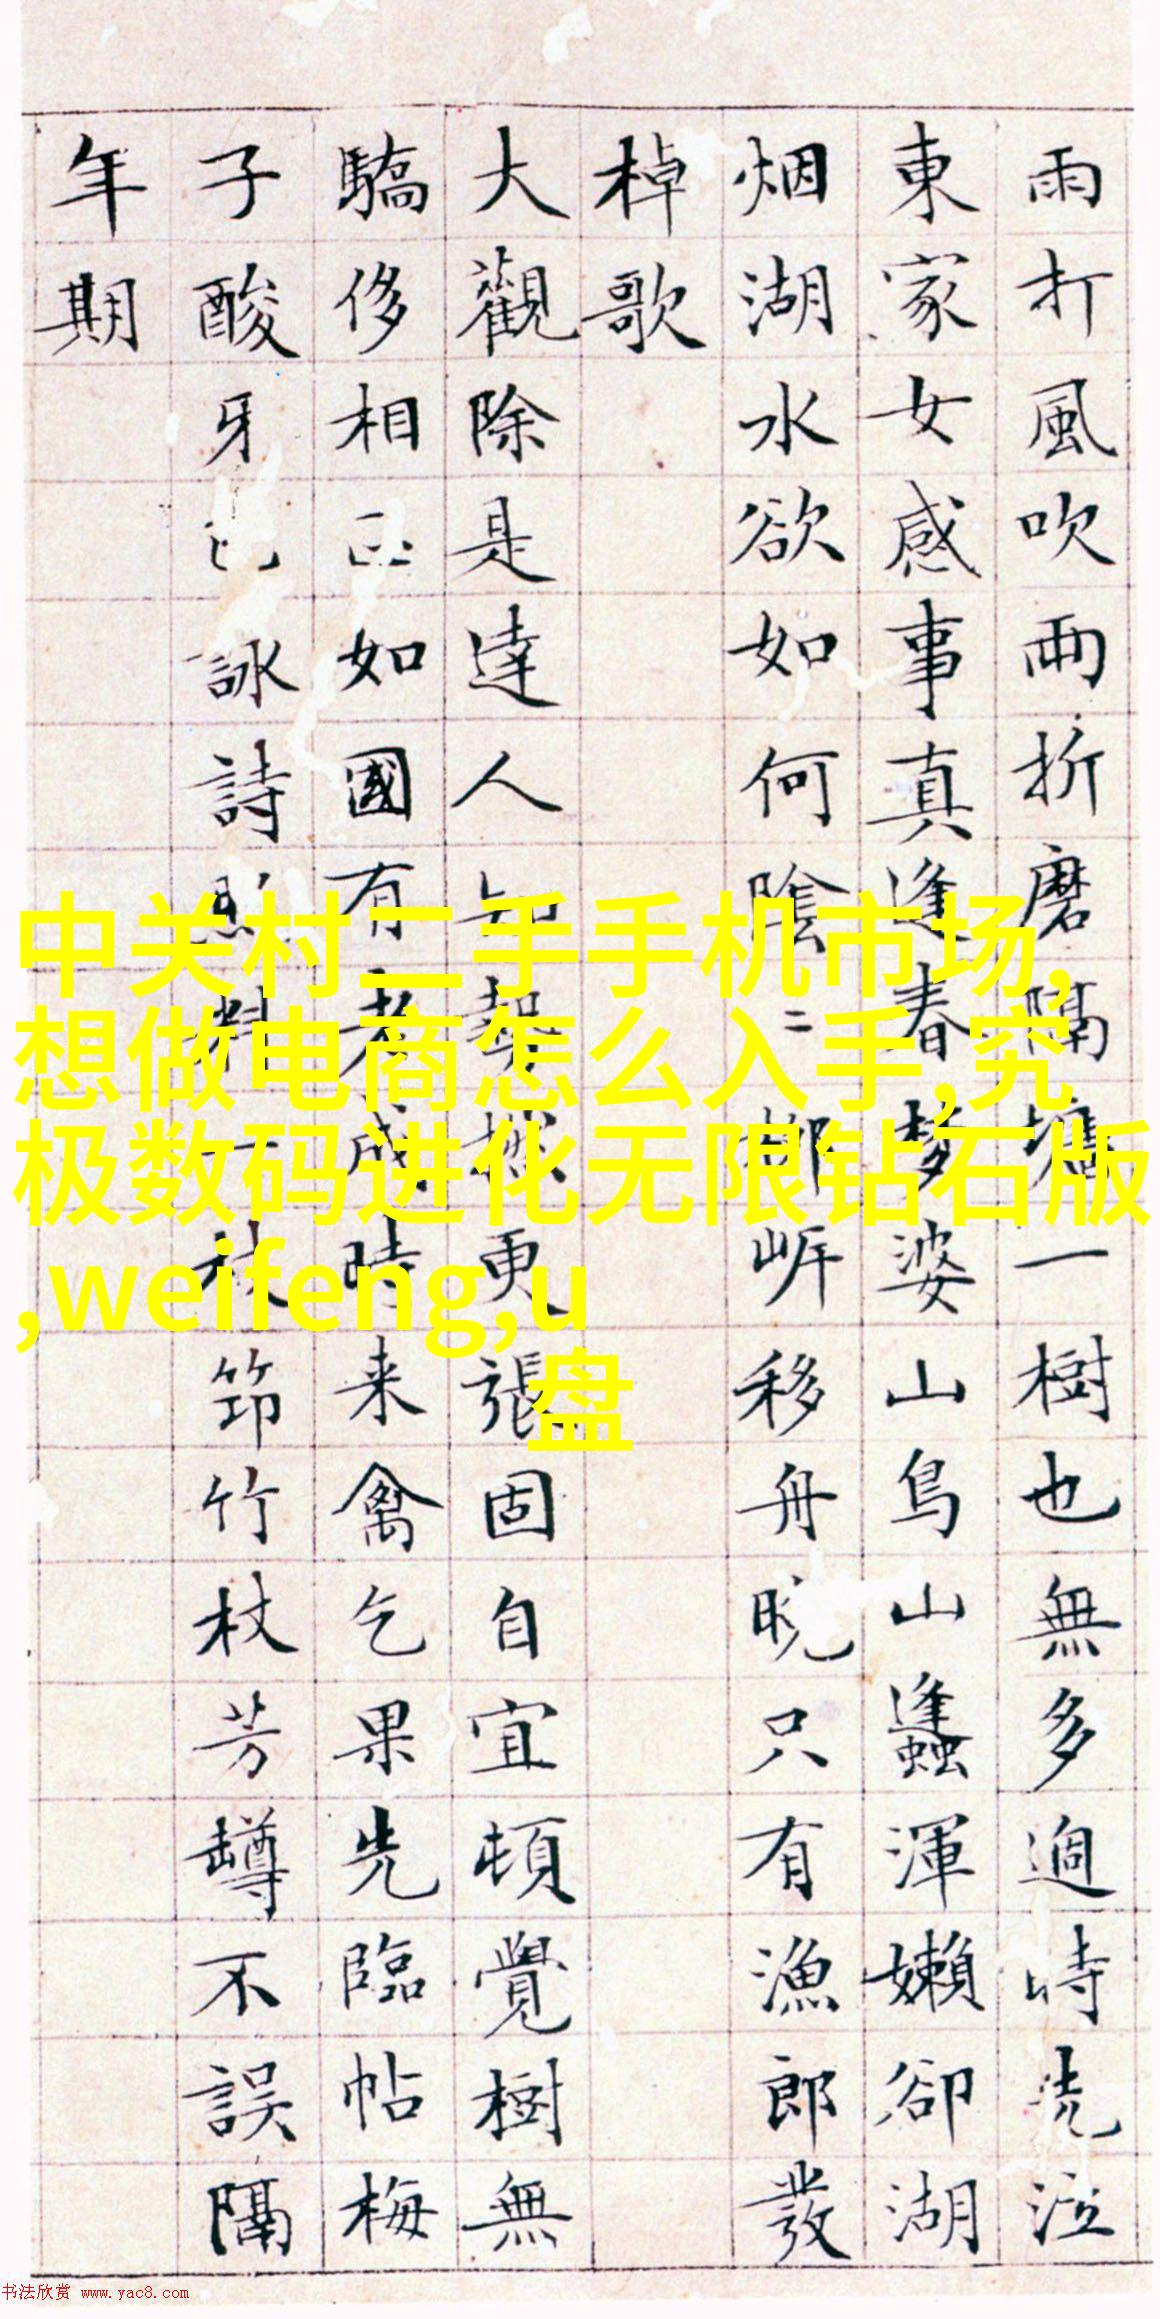 雨打風吹兩折磨隔墻一樹也無多過時
東家女感事真逢春夢婆山鳥山蠭渾嬾卻湖
烟湖水欲如何陰二移舟晚只有漁郎發
棹歌
大觀除是達人更張固自宜頓覺樹無
驕侈相如國有老成時来禽乞果先臨帖梅
子酸牙詠詩料一枝筇竹杖芳罇不誤隔
年期
中关村二手手机市场,
想做电商怎么入手,究
极数码进化无限钻石版
,weifeng,u
盘
书法欣赏 www.yac8.com